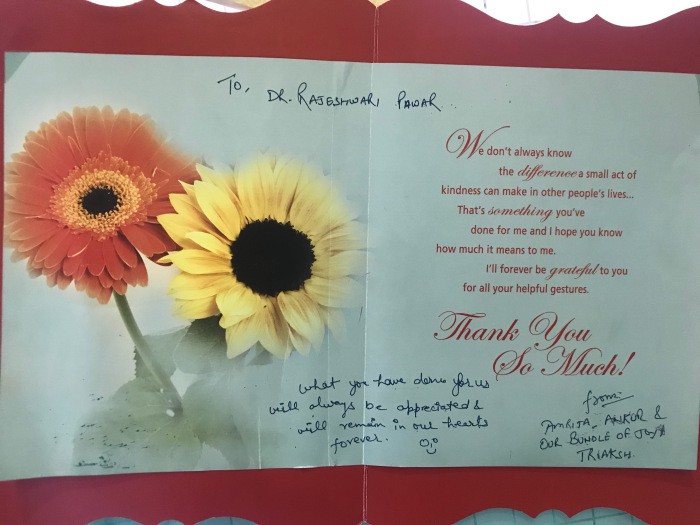 To,
DR. RAJESHWARI PAWAR.
We don't always know
the difference a small act of
kindness can make in other people's lives...
That's something you've
done for me and I hope you know
how much it means to me.
I'll forever be grateful to you
for all your helpful gestures.
Thank You
So Much!
What you have done for us
will always be appreciated &
will remain in our hearts
forever.
from:
AMRITA, ANKUR &
OUR BUNDLE OF JOY
TRIAKSH.